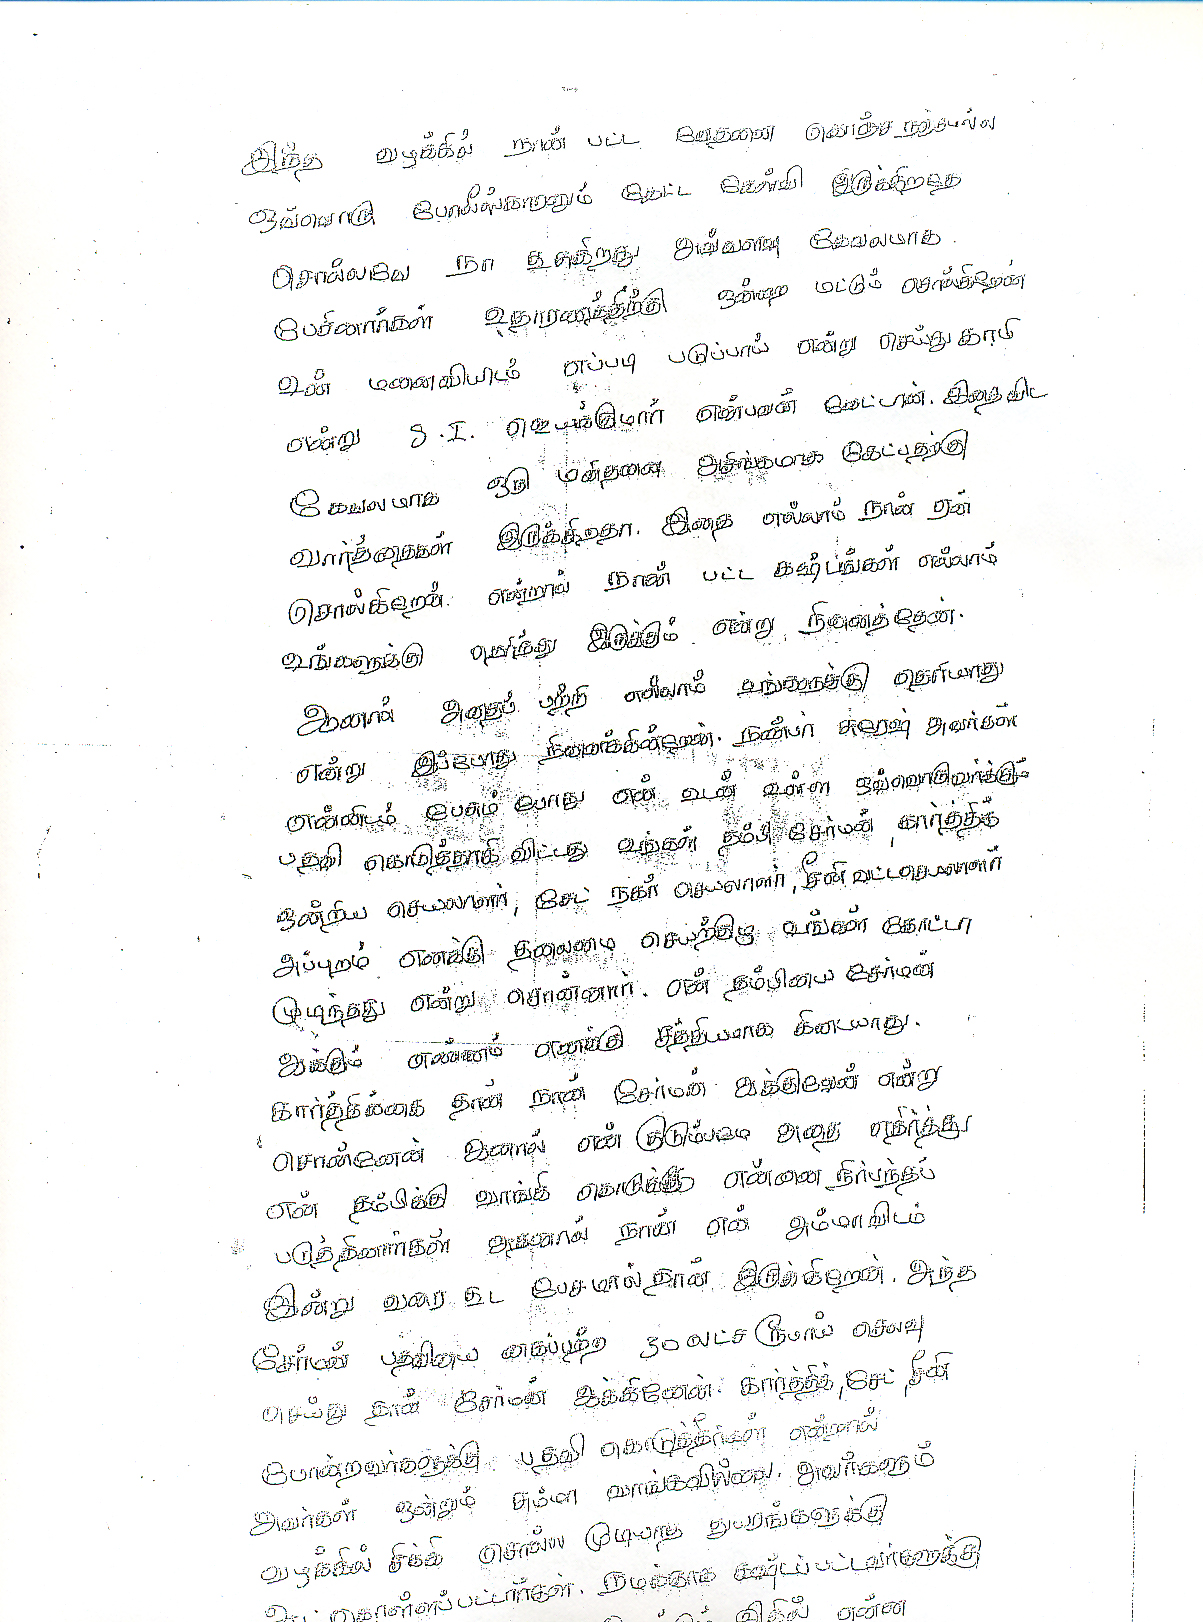 இந்த வழக்கில் நான் பட்ட வேதனை கொஞ்ச நஞ்சமல்ல
ஒவ்வொரு போலீஸ்காரனும் கேட்ட கேள்வி இருக்கிறதே
சொல்லவே நா கூசுகிறது அவ்வளவு கேவலமாக
பேசினார்கள் உதாரணத்திற்கு ஒன்றை மட்டும் சொல்கிறேன்
உன் மனைவியிடம் எப்படி படுப்பாய் என்று செய்து காமி
என்று S.I. என்பவன் கேட்டான். இதைவிட
கேவலமாக ஒரு மனிதனை அசிங்கமாக கேட்பதற்கு
வார்த்தைகள் இருக்கிறதா. இதை எல்லாம் நான் ஏன்
சொல்கிறேன். என்றால் நான் பட்ட கஷ்டங்கள் எல்லாம்
உங்களுக்கு தெரிந்து இருக்கும் என்று நினைத்தேன்.
ஆனால் அதைப் பற்றி எல்லாம் உங்களுக்கு தெரியாது
என்று இப்போது நினைக்கின்றேன். நண்பர் சுரேஷ் அவர்கள்
என்னிடம் பேசும் போது என் உடன் உள்ள ஒவ்வொருவர்க்கும்
பதவி கொடுத்தாகி விட்டது உங்கள் தம்பி சேர்மன், கார்த்திக்
ஒன்றிய செயலாளர், சேட் நகர செயலாளர், சீனி வட்டசெயலாளர்
அப்புறம் எனக்கு தலைமை செயற்குழு உங்கள் கோட்டா
முடிந்தது என்று சொன்னார். என் தம்பியை சேர்மன்
ஆக்கும் எண்ணம் எனக்கு சத்தியமாக கிடையாது.
கார்த்திக்கை தான் நான் சேர்மன் ஆக்குவேன் என்று
சொன்னேன் ஆனால் என் குடும்பமே அதை எதிர்த்து
என் தம்பிக்கு வாங்கி கொடுக்க என்னை நிர்பந்தப்
படுத்தினார்கள் அதனால் நான் என் அம்மாவிடம்
இன்று வரை கூட பேசாமல்தான் இருக்கிறேன். அந்த
சேர்மன் பதவியை கைப்பற்ற 50 லட்ச ரூபாய் செலவு
செய்து தான் சேர்மன் ஆக்கினேன். கார்த்திக், சேட், சீனி
போன்றவர்களுக்கு பதவி கொடுத்தீர்கள் என்றால்
அவர்கள் ஒன்றும் சும்மா வாங்கவில்லை. அவர்களும்
வழக்கில் சிக்கி சொல்ல முடியாத துயரங்களுக்கு
ஆட்கொள்ளப்பட்டார்கள். நமக்காக கஷ்டப்பட்டவர்களுக்கு
இதில் என்ன